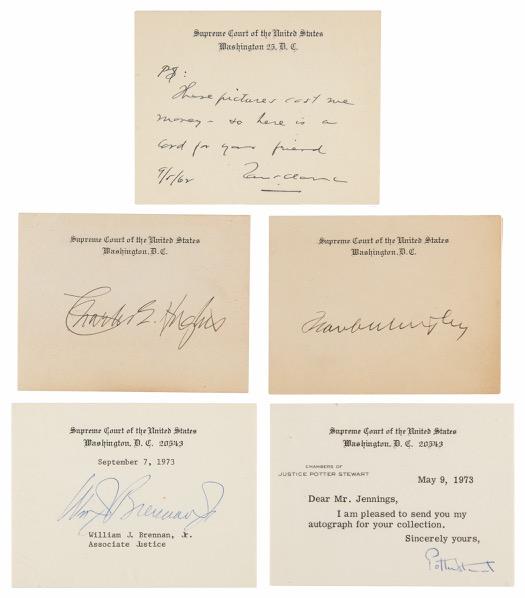 Supreme Court of the United States
Washington 25, D. C.
These pictures cost me
money - so here is a
card for your friend
9/5/62
Supreme Court of the United States
Washington, D. C.
Charles E. Hughes
Supreme Court of the United States
Washington, D. C.
Supreme Court of the United States
Washington, D. C. 20543
September 7, 1973
Wm J Brennan Jr
William J. Brennan, Jr.
Associate Justice
Supreme Court of the United States
Washington, D. C. 20543
CHAMBERS OF
JUSTICE POTTER STEWART
May 9, 1973
Dear Mr. Jennings,
I am pleased to send you my
autograph for your collection.
Sincerely yours,
Potter Stewart